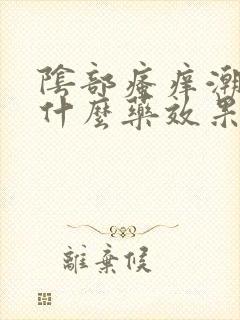 陰部瘙痒潮
什麼藥效果
離棄候